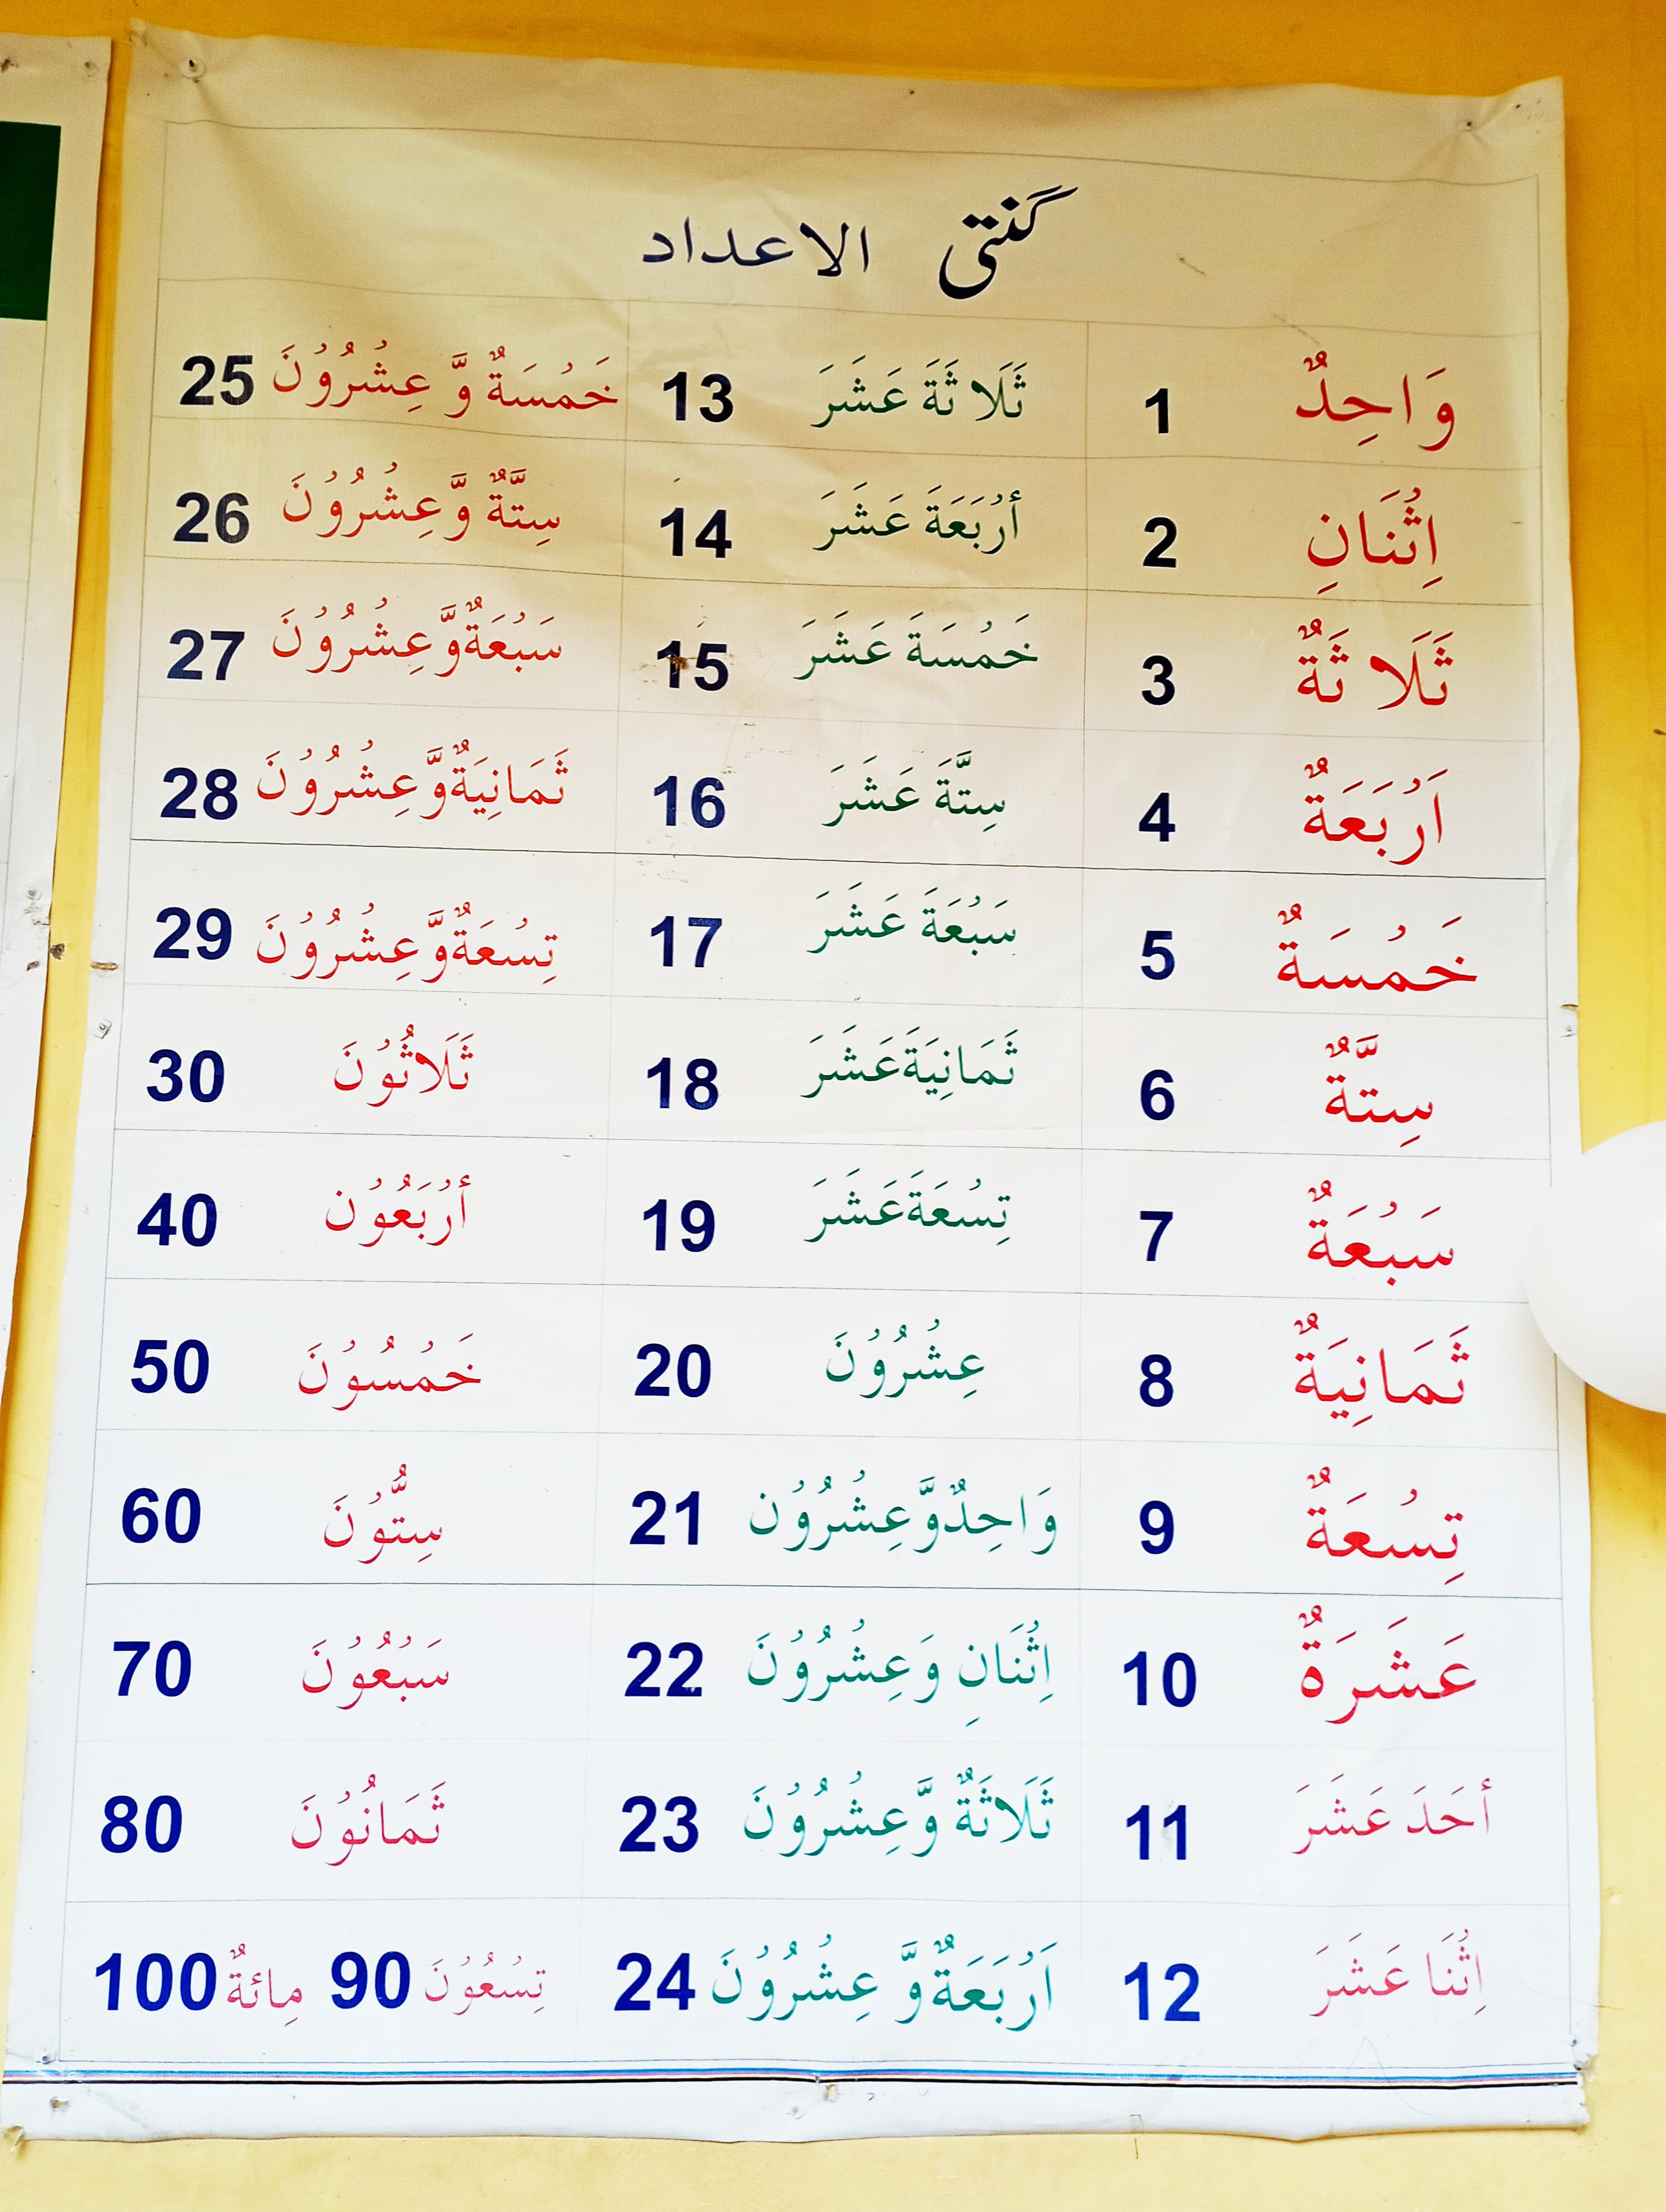 گنتی الاعداد
وَاحِدٌ 1
اِثْنَانِ 2
ثَلَاثَةٌ 3
اَرْبَعَةٌ 4
خَمْسَةٌ 5
سِتَّةٌ 6
سَبْعَةٌ 7
ثَمَانِيَةٌ 8
تِسْعَةٌ 9
عَشَرَةٌ 10
أحَدَ عَشَرَ 11
اِثْنَا عَشَرَ 12
ثَلَاثَةَ عَشَرَ 13
أرْبَعَةَ عَشَرَ 14
خَمْسَةَ عَشَرَ 15
سِتَّةَ عَشَرَ 16
سَبْعَةَ عَشَرَ 17
ثَمَانِيَةَ عَشَرَ 18
تِسْعَةَ عَشَرَ 19
عِشْرُوْنَ 20
وَاحِدٌ وَّعِشْرُوْن 21
اِثْنَانِ وَعِشْرُوْنَ 22
ثَلَاثَةٌ وَّعِشْرُوْنَ 23
اَرْبَعَةٌ وَّ عِشْرُوْنَ 24
خَمْسَةٌ وَّ عِشْرُوْنَ 25
سِتَّةٌ وَّعِشْرُوْنَ 26
سَبْعَةٌ وَّعِشْرُوْنَ 27
ثَمَانِيَةٌ وَّعِشْرُوْنَ 28
تِسْعَةٌ وَّعِشْرُوْنَ 29
ثَلَاثُوْنَ 30
أرْبَعُوْن 40
خَمْسُوْنَ 50
سِتُّوْنَ 60
سَبْعُوْنَ 70
ثَمَانُوْنَ 80
تِسْعُوْنَ 90 مِائةٌ 100